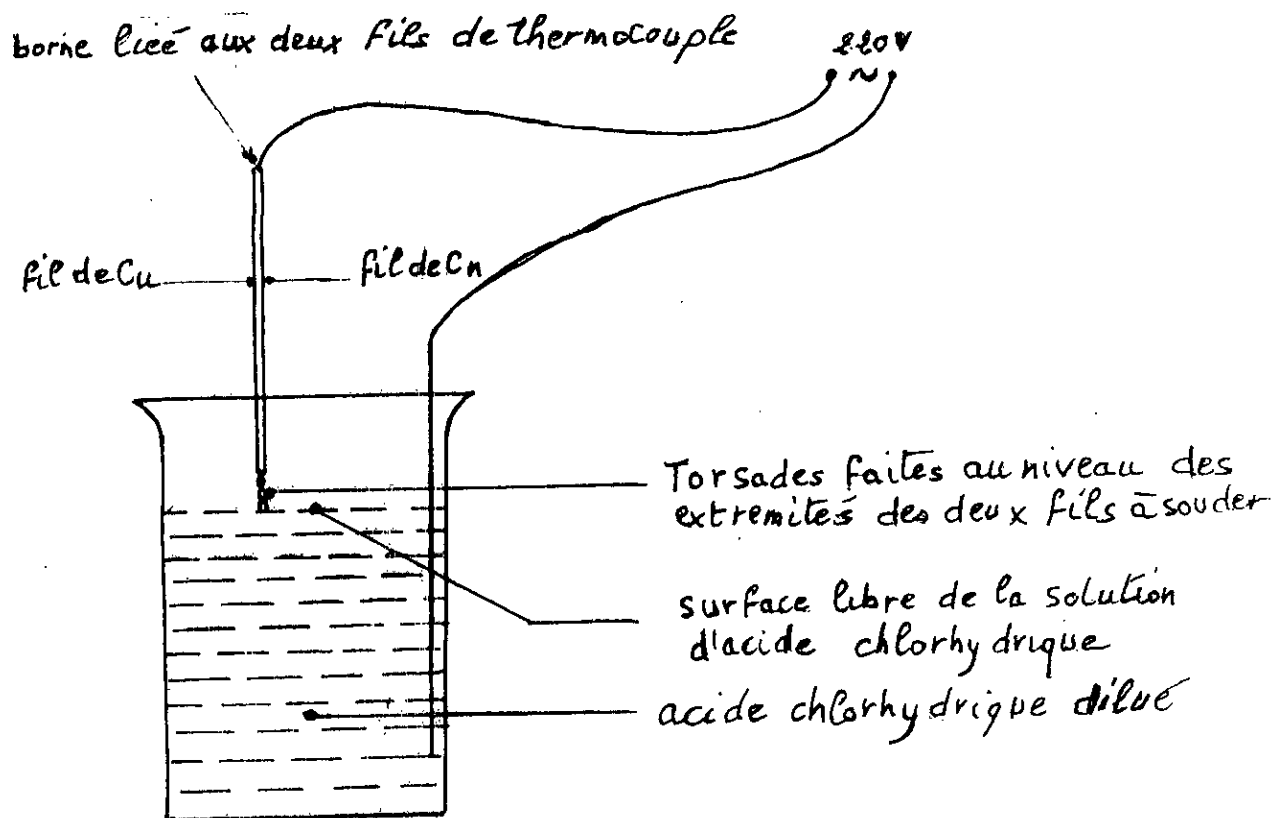 borne liée aux deux fils de thermocouple
220V
~
fil de Cu
fil de Cn
Torsades faites au niveau des
extremités des deux fils à souder
surface libre de la solution
d'acide chlorhydrique
acide chlorhydrique dilué